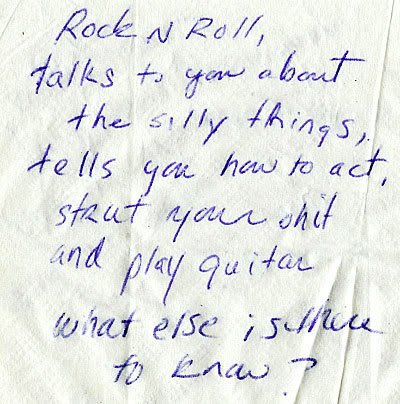 Rock N Roll,
talks to you about
the silly things,
tells you how to act,
strut your shit
and play guitar
what else is there
to know?